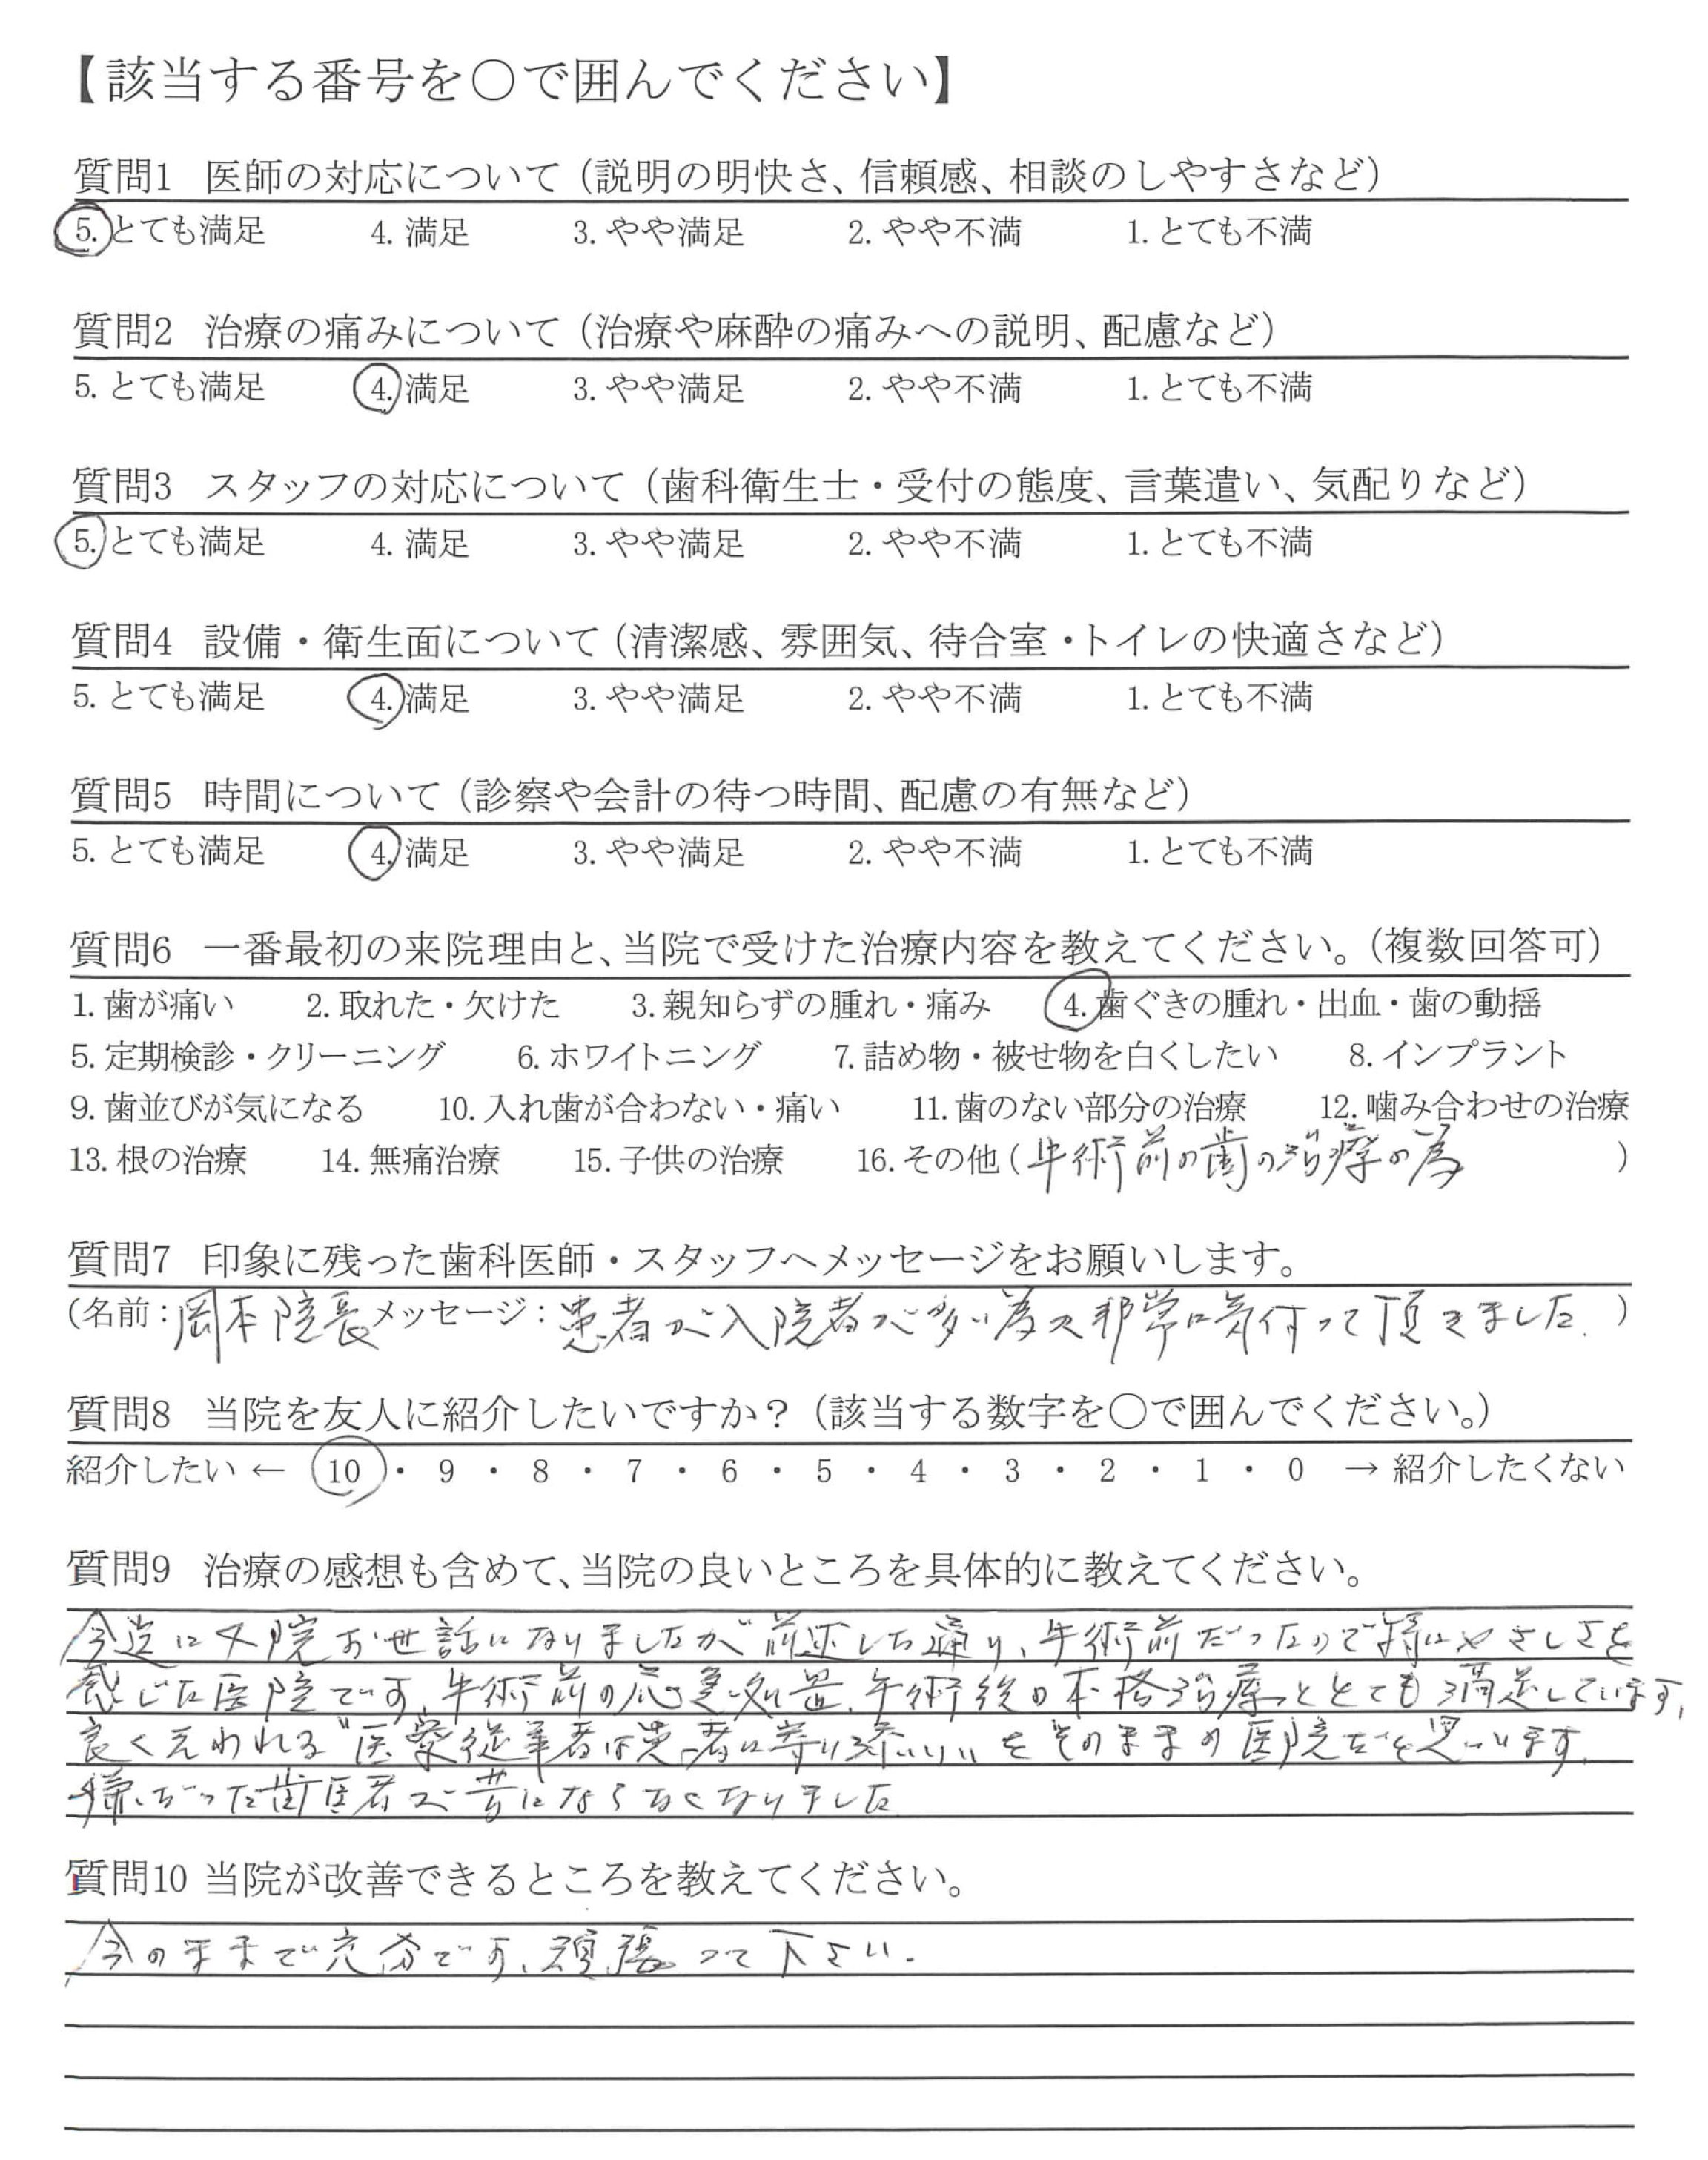 【該当する番号を○で囲んでください】
質問1 医師の対応について（説明の明快さ、信頼感、相談のしやすさなど）
5. とても満足 4. 満足 3. やや満足 2. やや不満 1. とても不満
質問2 治療の痛みについて（治療や麻酔の痛みへの説明、配慮など）
5. とても満足 4. 満足 3. やや満足 2. やや不満 1. とても不満
質問3 スタッフの対応について（歯科衛生士・受付の態度、言葉遣い、気配りなど）
5. とても満足 4. 満足 3. やや満足 2. やや不満 1. とても不満
質問4 設備・衛生面について（清潔感、雰囲気、待合室・トイレの快適さなど）
5. とても満足 4. 満足 3. やや満足 2. やや不満 1. とても不満
質問5 時間について（診察や会計の待つ時間、配慮の有無など）
5. とても満足 4. 満足 3. やや満足 2. やや不満 1. とても不満
質問6 一番最初の来院理由と、当院で受けた治療内容を教えてください。（複数回答可）
1. 歯が痛い 2. 取れた・欠けた 3. 親知らずの腫れ・痛み 4. 歯ぐきの腫れ・出血・歯の動揺
5. 定期検診・クリーニング 6. ホワイトニング 7. 詰め物・被せ物を白くしたい 8. インプラント
9. 歯並びが気になる 10. 入れ歯が合わない・痛い 11. 歯のない部分の治療 12. 噛み合わせの治療
13. 根の治療 14. 無痛治療 15. 子供の治療 16. その他（手術前の歯の治療の為）
質問7 印象に残った歯科医師・スタッフへメッセージをお願いします。
（名前：岡本院長 メッセージ：患者が入院者が多い為 非常に気付って頂きました.）
質問8 当院を友人に紹介したいですか？（該当する数字を○で囲んでください。）
紹介したい ← 10 ・ 9 ・ 8 ・ 7 ・ 6 ・ 5 ・ 4 ・ 3 ・ 2 ・ 1 ・ 0 → 紹介したくない
質問9 治療の感想も含めて、当院の良いところを具体的に教えてください。
今迄に 院お世話になりましたが 前述した通り、手術前だったので特にやさしさを
感じた医院です. 手術前の応急処置、手術後の本格治療ととても満足しています,
良く云われる"医療従事者は患者に寄り添い,, をそのままの医院だと思います.
嫌だった歯医者が苦にならなくなりました
質問10 当院が改善できるところを教えてください。
今のままで充分です、頑張って下さい.